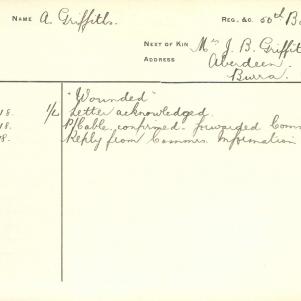 NAME A. Griffiths. REG. &c. 50th Ba
NEXT OF KIN Mrs J. B. Griffit
ADDRESS Aberdeen.
Burra.
"Wounded"
18. 1/L Letter acknowledged.
18. P/Cable, confirmed. forwarded Comm
18. Reply from Commrs. Information